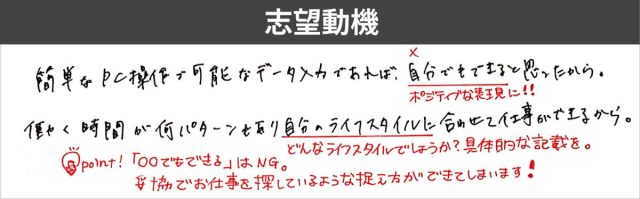 志望動機
×
簡単なPC操作で可能なデータ入力であれば、自分でもできると思ったから。
ポジティブな表現に!!
働く時間が何パターンもあり自分のライフスタイルに合わせて仕事ができるから。
どんなライフスタイルでしょうか?具体的な記載を。
point!「〇〇でもできる」はNG。
妥協でお仕事を探しているような捉え方ができてしまいます!